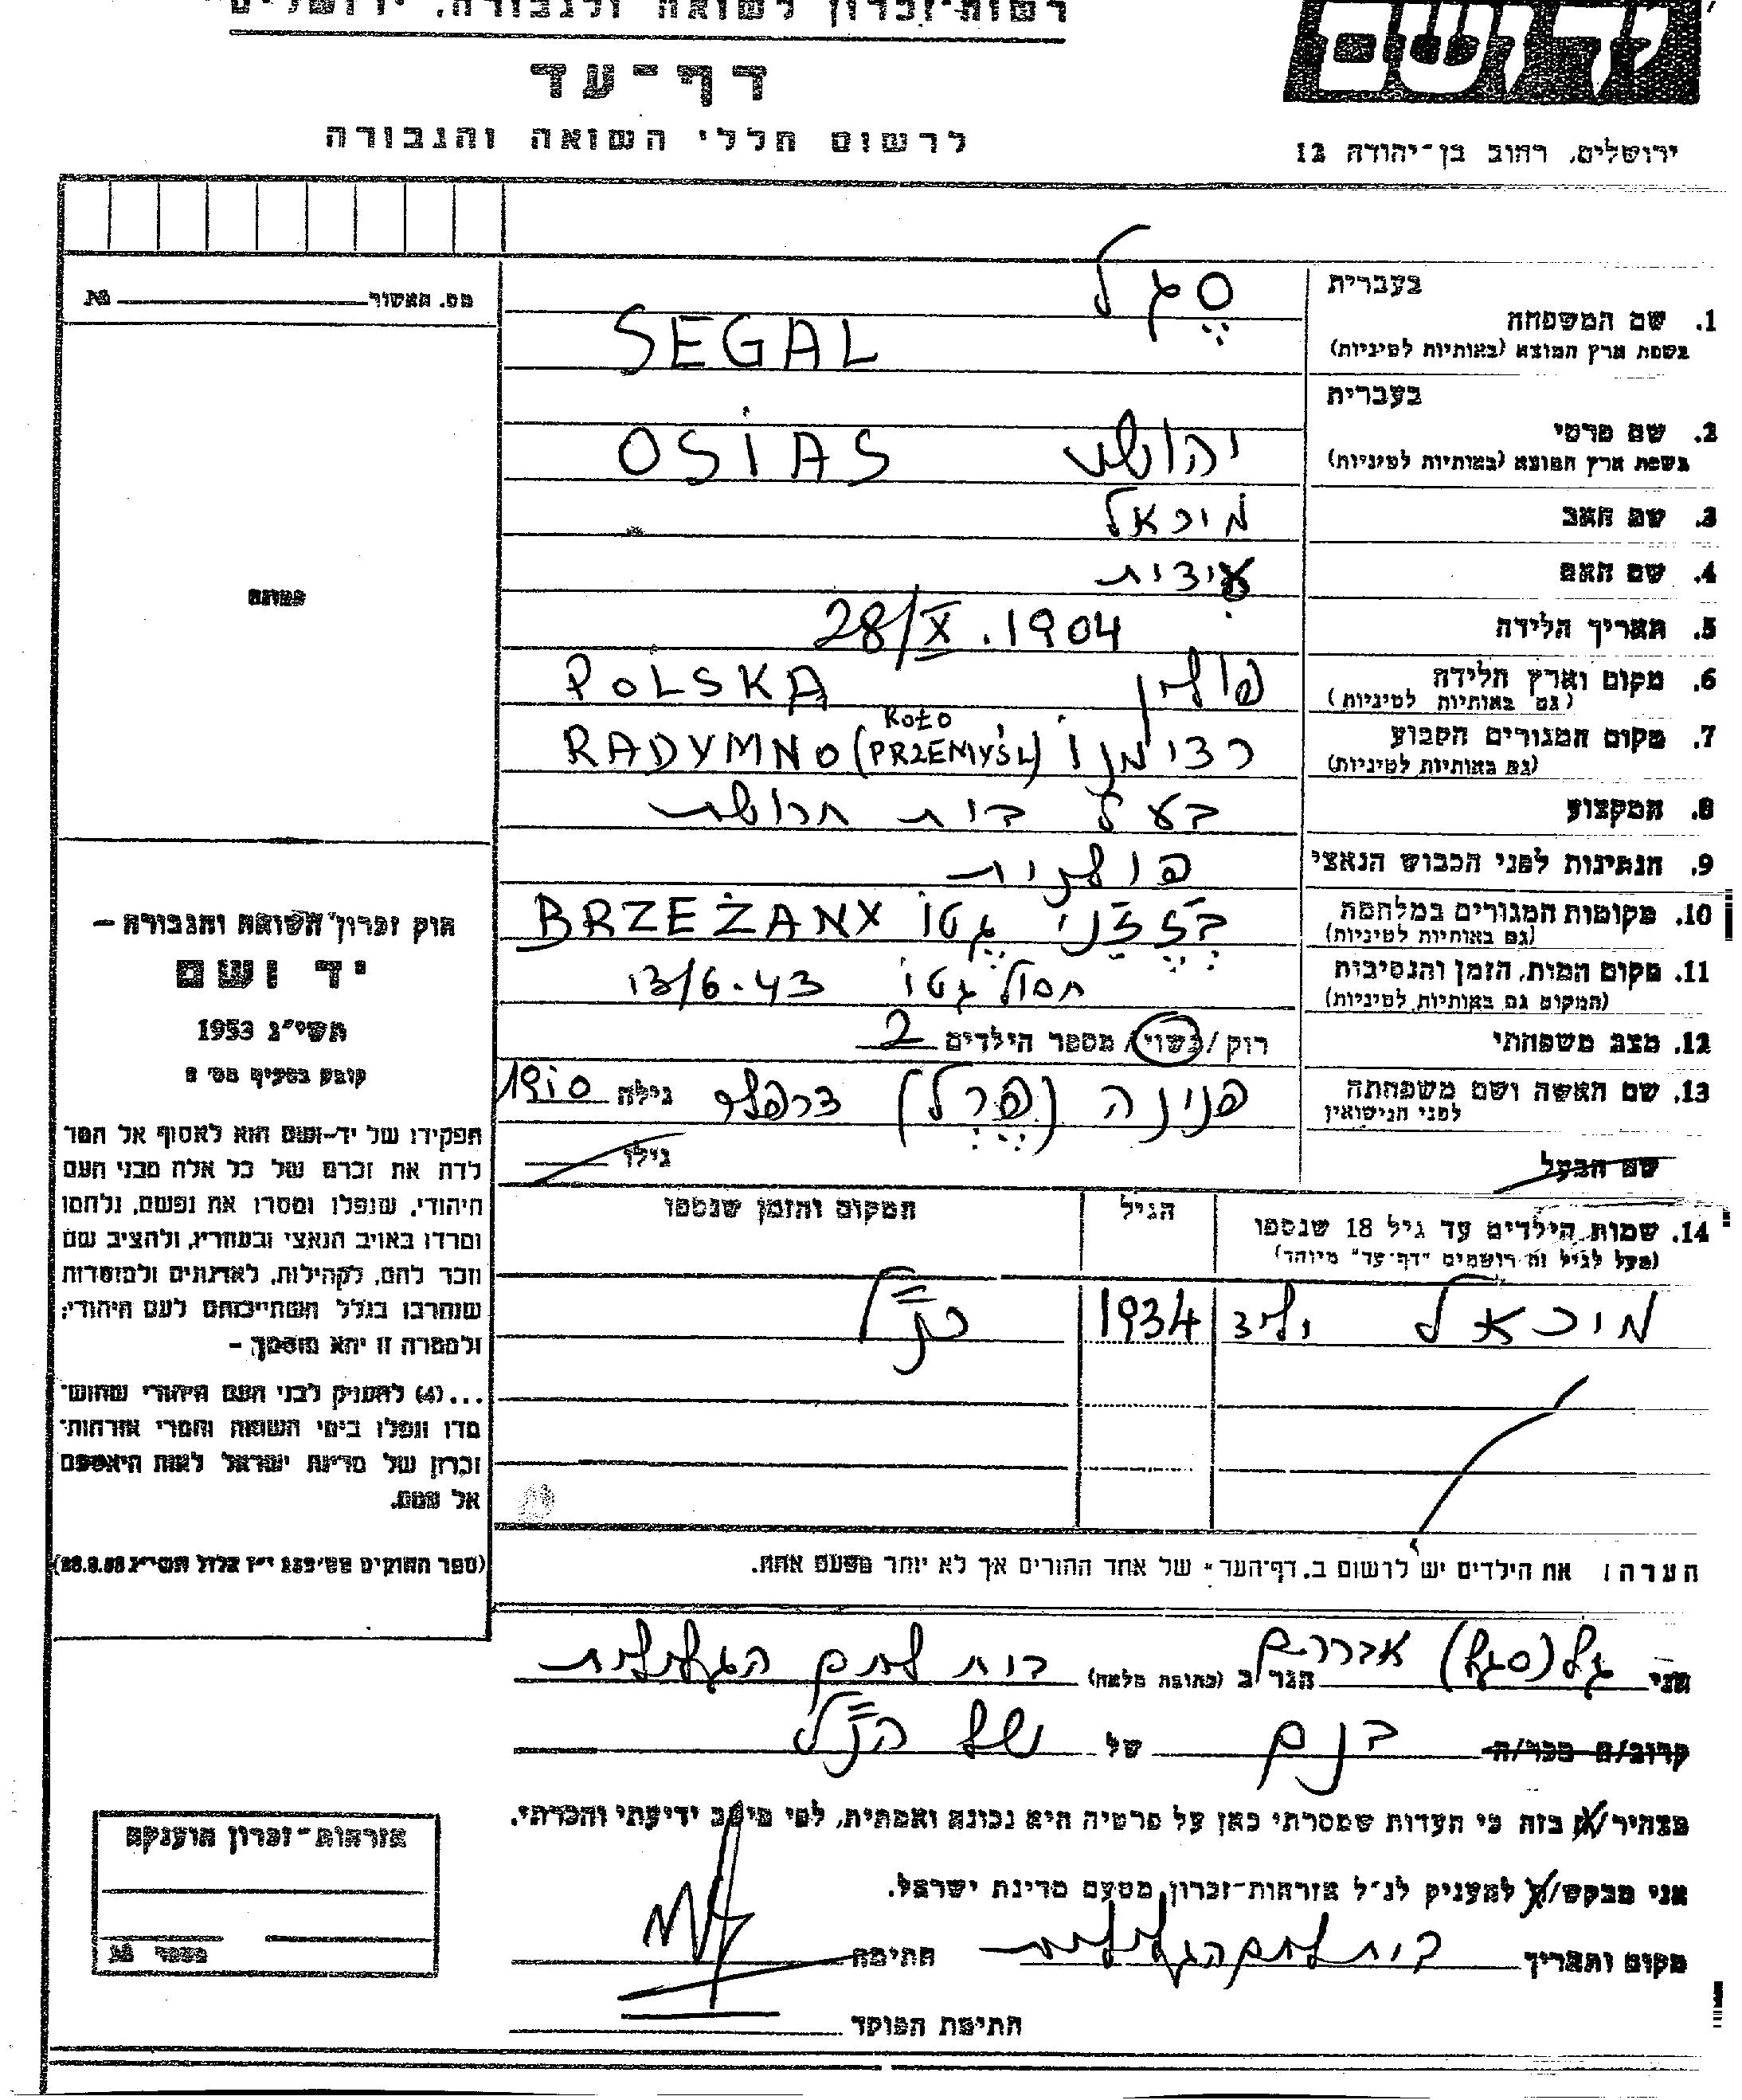 רשות-זכרון לשואה ולגבורה, ירושלים
דף-עד
לרשום חללי השואה והגבורה
ירושלים, רחוב בן-יהודה 12
מס. האשור № 
בעברית סגל
1. שם המשפחה
בשפת ארץ המוצא (באותיות לטיניות) SEGAL
בעברית
2. שם פרטי יהושע
בשפת ארץ המוצא (באותיות לטיניות) OSIAS
3. שם האב מיכאל
4. שם האם
5. תאריך הלידה 28/X.1904
6. מקום וארץ הלידה פולין POLSKA
(גם באותיות לטיניות)
7. מקום המגורים הקבוע רדימנו RADYMNO (KOŁO PRZEMYŚL)
(גם באותיות לטיניות)
8. המקצוע בעל בית חרושת
9. הנתינות לפני הכבוש הנאצי פולנית
10. מקומות המגורים במלחמה גטו BRZEŻANY
(גם באותיות לטיניות)
11. מקום המות, הזמן והנסיבות חסול גטו 13/6.43
(המקום גם באותיות לטיניות)
12. מצב משפחתי רוק / נשוי / מספר הילדים 2
13. שם האשה ושם משפחתה פנינה (פרל) גילה 1910
לפני הנישואין
שם הבעל גילו
14. שמות הילדים עד גיל 18 שנספו הגיל המקום והזמן שנספו
(מעל לגיל זה רושמים "דף-עד" מיוחד)
מיכאל יליד 1934 כנ"ל
הערה: את הילדים יש לרשום ב"דף-העד" של אחד ההורים אך לא יותר מפעם אחת.
אני גיל (סגל) אברהם הגר ב (כתובת מלאה) בית לחם הגלילית
קרוב/ה מכר/ה בנם של של הנ"ל
מצהיר/ה בזה כי העדות שמסרתי כאן על פרטיה היא נכונה ואמתית, לפי מיטב ידיעתי והכרתי.
אני מבקש/ת להעניק לנ"ל אזרחות-זכרון מטעם מדינת ישראל.
מקום ותאריך בית לחם הגלילית חתימה
חתימת הפוקד
חוק זכרון השואה והגבורה –
יד ושם
תשי"ג 1953
קובע בסעיף מס' 2
תפקידו של יד-ושם הוא לאסוף אל המו
לדת את זכרם של כל אלה מבני העם
היהודי, שנפלו ומסרו את נפשם, נלחמו
ומרדו באויב הנאצי ובעוזריו, ולהציב שם
וזכר להם, לקהילות, לארגונים ולמוסדות
שנחרבו בגלל השתייכותם לעם היהודי;
ולמטרה זו יהא מוסמך –
...(4) להעניק לבני העם היהודי שהוש-
מדו ונפלו בימי השואה והמרי אזרחות-
זכרון של מדינת ישראל לאות היאספם
אל עמם.
אזרחות-זכרון הוענקה
מספר №